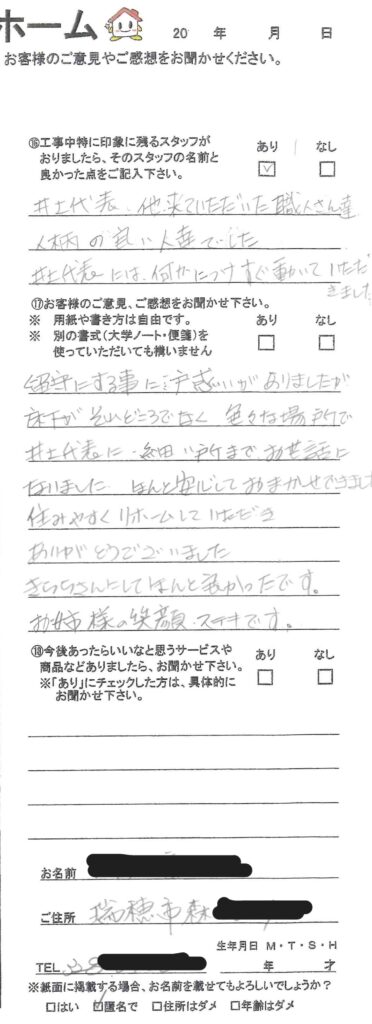 ホーム
20 年 月 日
お客様のご意見やご感想をお聞かせください。
⑯工事中特に印象に残るスタッフが
おりましたら、そのスタッフの名前と
良かった点をご記入下さい。
あり なし
井土代表、他来ていただいた職人さん達
人柄の良い人達でした
井土代表には、何かにつけすぐ動いていただ
きました
⑰お客様のご意見、ご感想をお聞かせ下さい。
※ 用紙や書き方は自由です。
※ 別の書式(大学ノート・便箋)を
使っていただいても構いません
あり なし
留守にする事に戸惑いがありましたが
床下が それどころでなく 色々な場所で
井土代表に、細い所まで、お世話に
なりました ほんと安心しておまかせできまし
住みやすくリホームしていただき
ありがとうございました
きらちさんにしてほんと良かったです。
お姉様の笑顔、ステキです。
⑱今後あったらいいなと思うサービスや
商品などありましたら、お聞かせ下さい。
※「あり」にチェックした方は、具体的に
お聞かせ下さい。
あり なし
お名前
ご住所 瑞穂市森
生年月日 M・T・S・H
TEL 年 才
※紙面に掲載する場合、お名前を載せてもよろしいでしょうか?
□はい ☑匿名で □住所はダメ □年齢はダメ